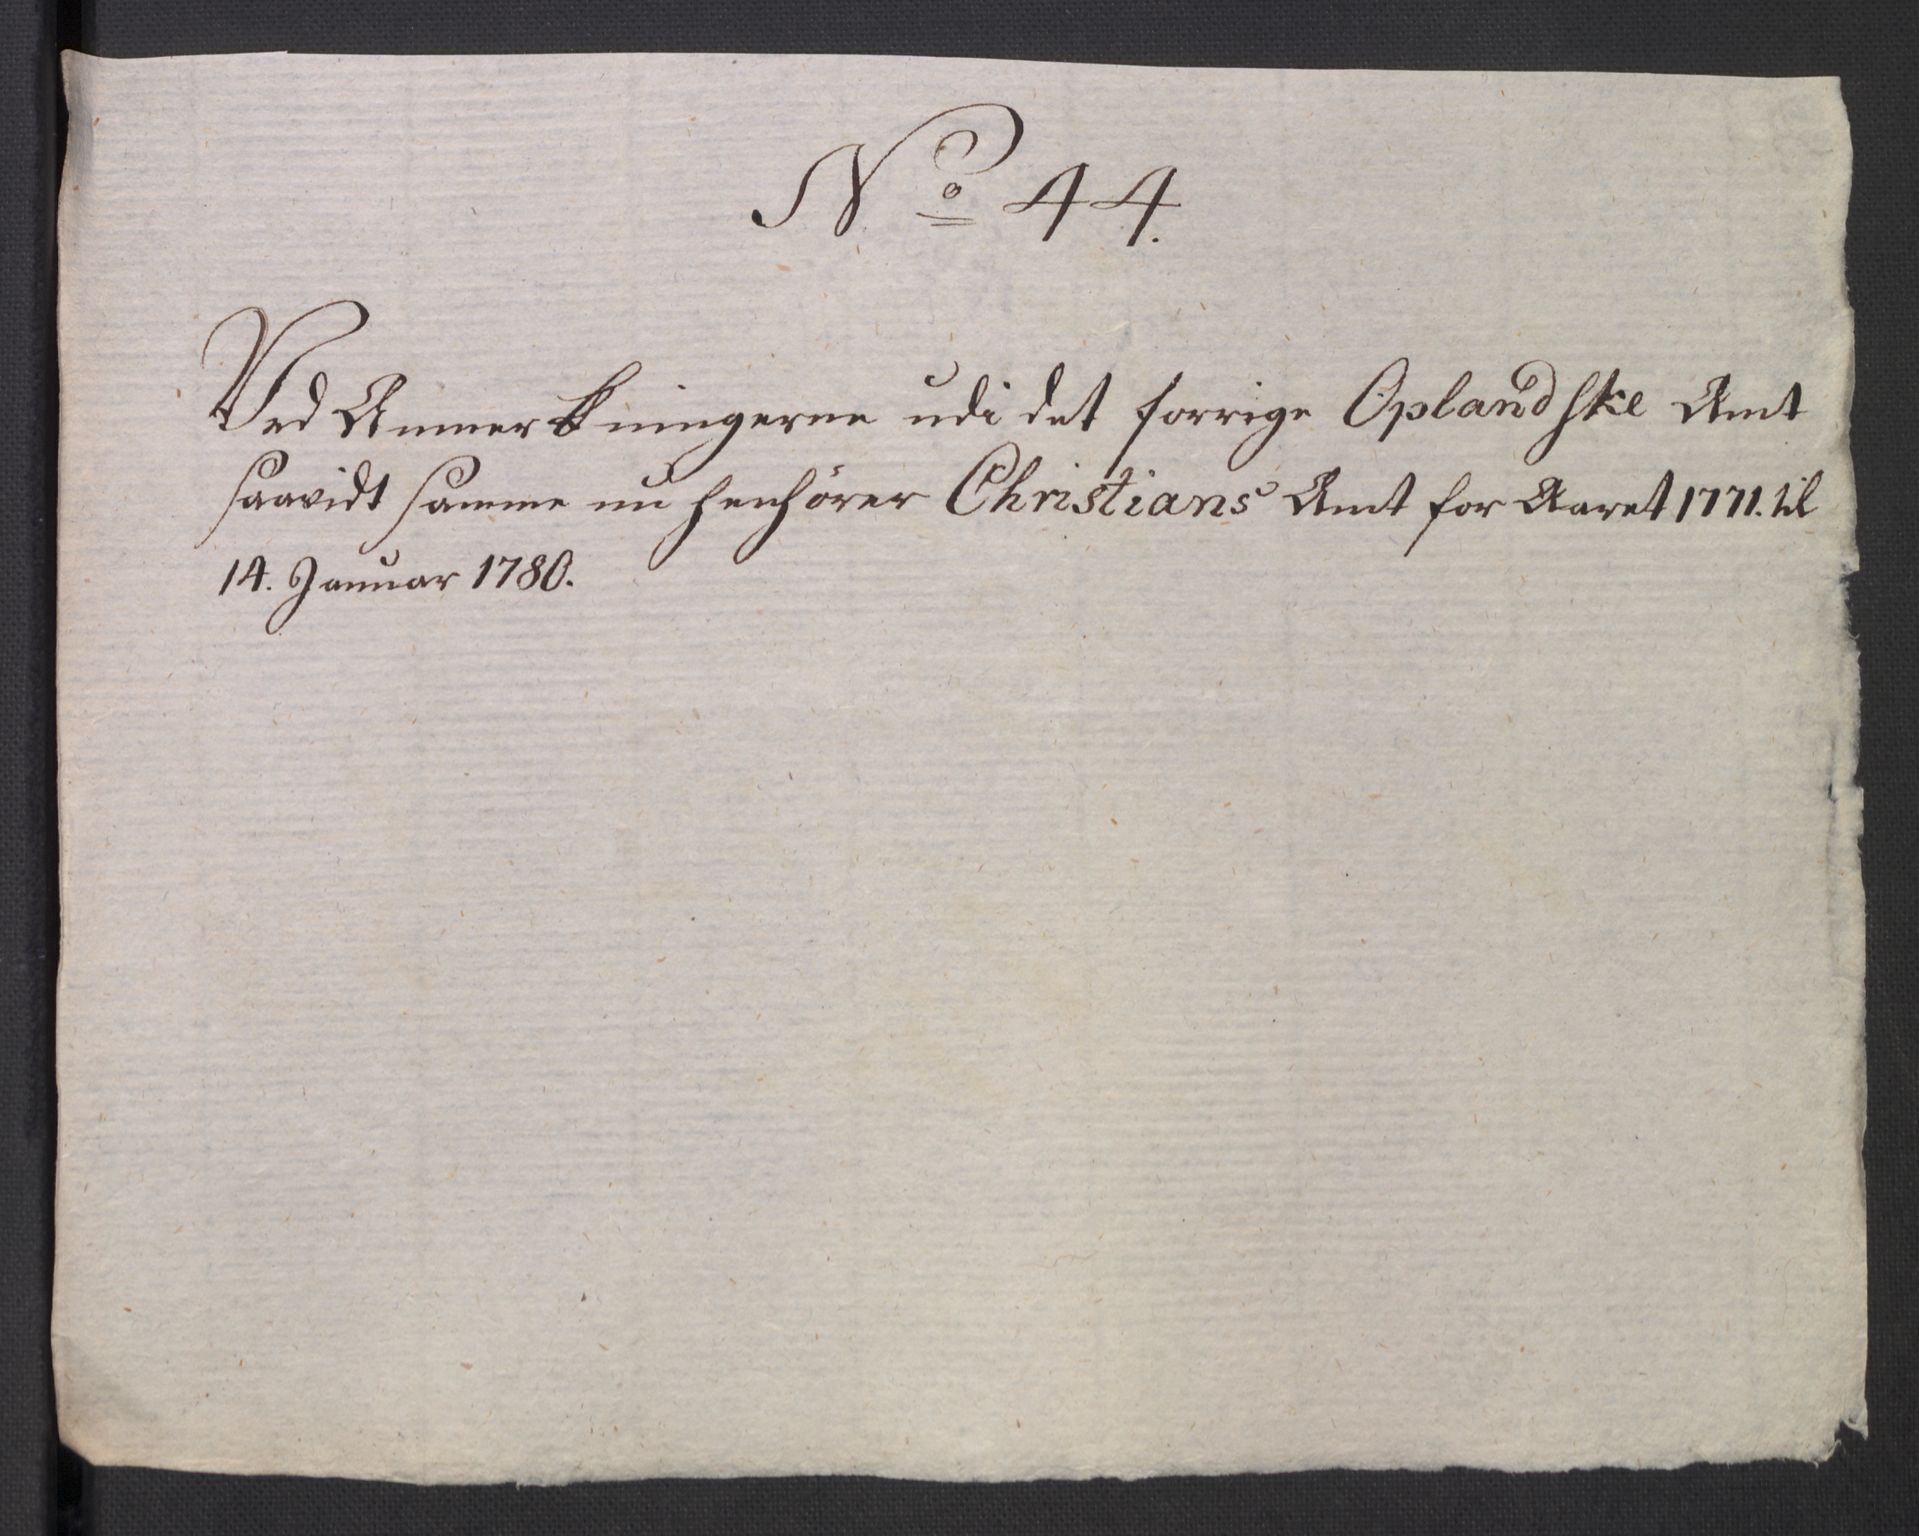 No 44.
Ved Anmerkningerne udi det forrige Oplandske Amt
saavidt samme nu henhörer Christians Amt for Aaret 1771. til
14. Januar 1780.